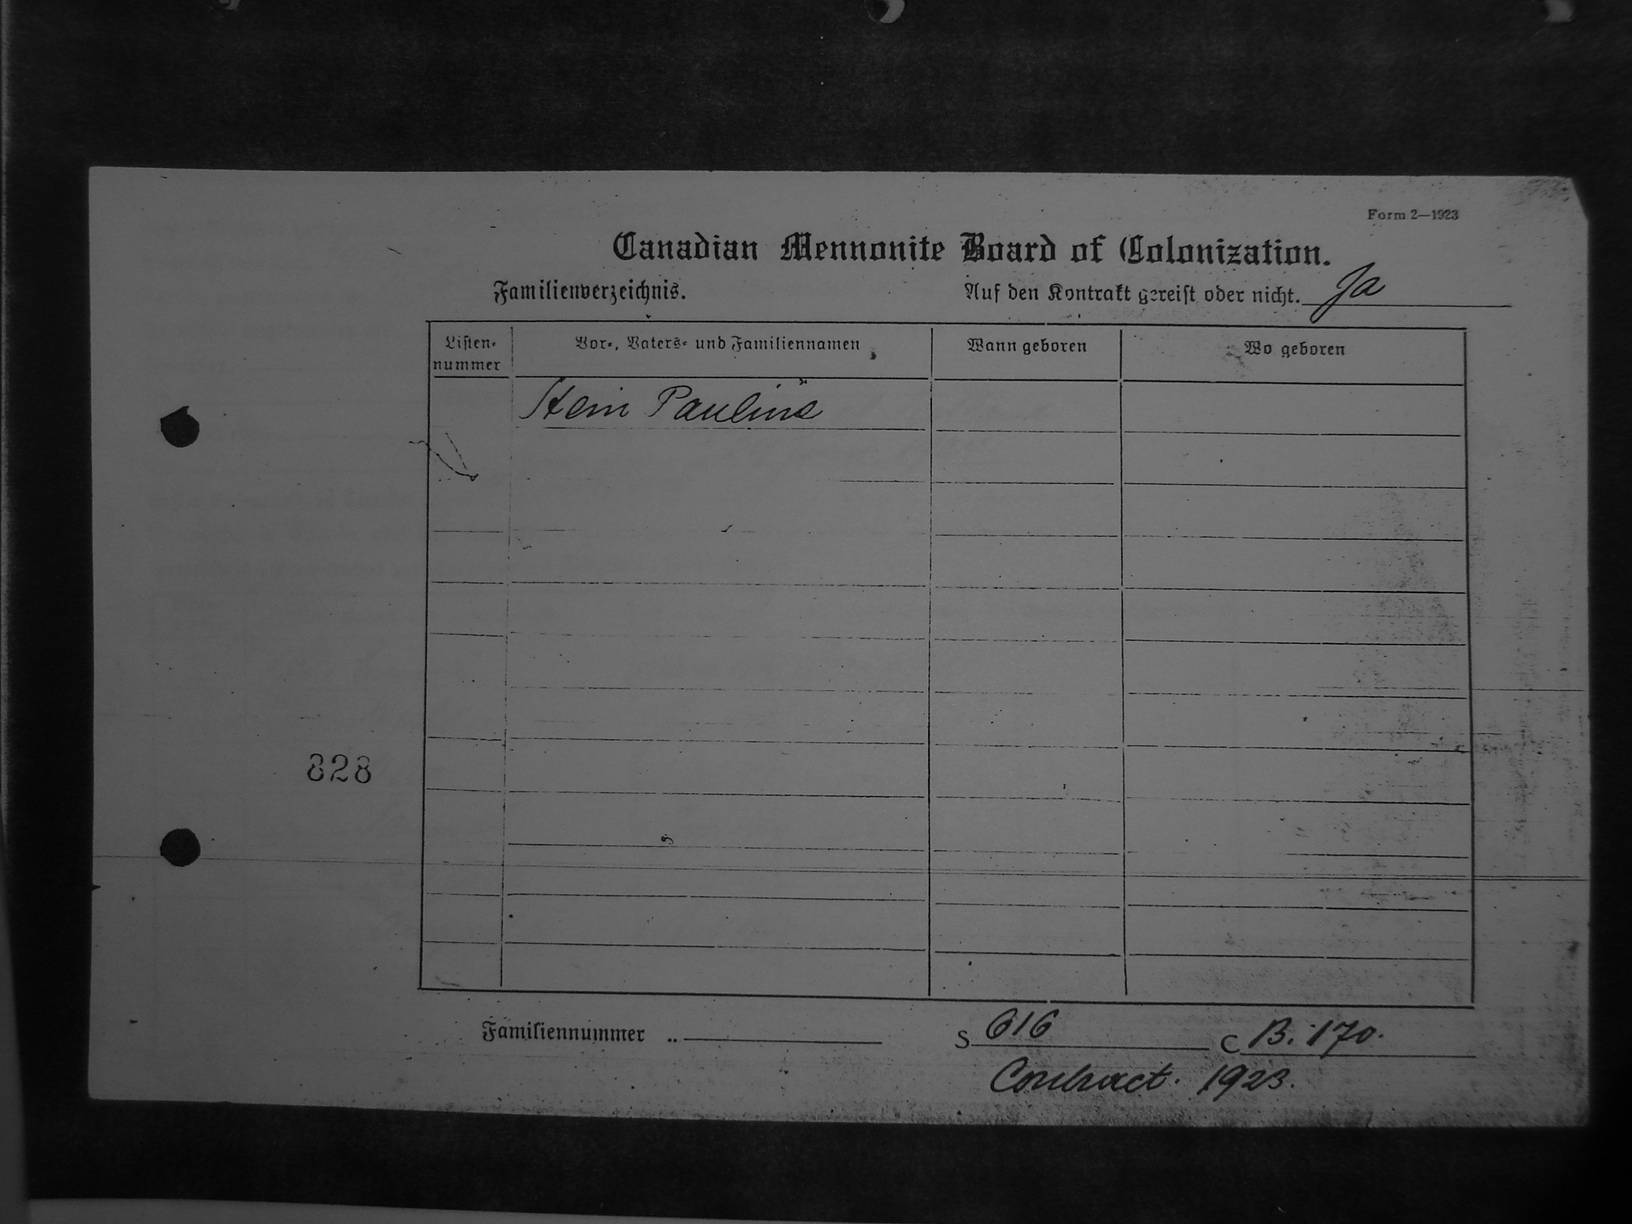 Form 2—1923
Canadian Mennonite Board of Colonization.
Familienverzeichnis.
Auf den Kontrakt gereist oder nicht. Ja
Listen-
nummer
Vor-, Vaters- und Familiennamen
Wann geboren
Wo geboren
Stein Pauline
828
Familiennummer ..
S 616
C B. 170.
Contract. 1923.